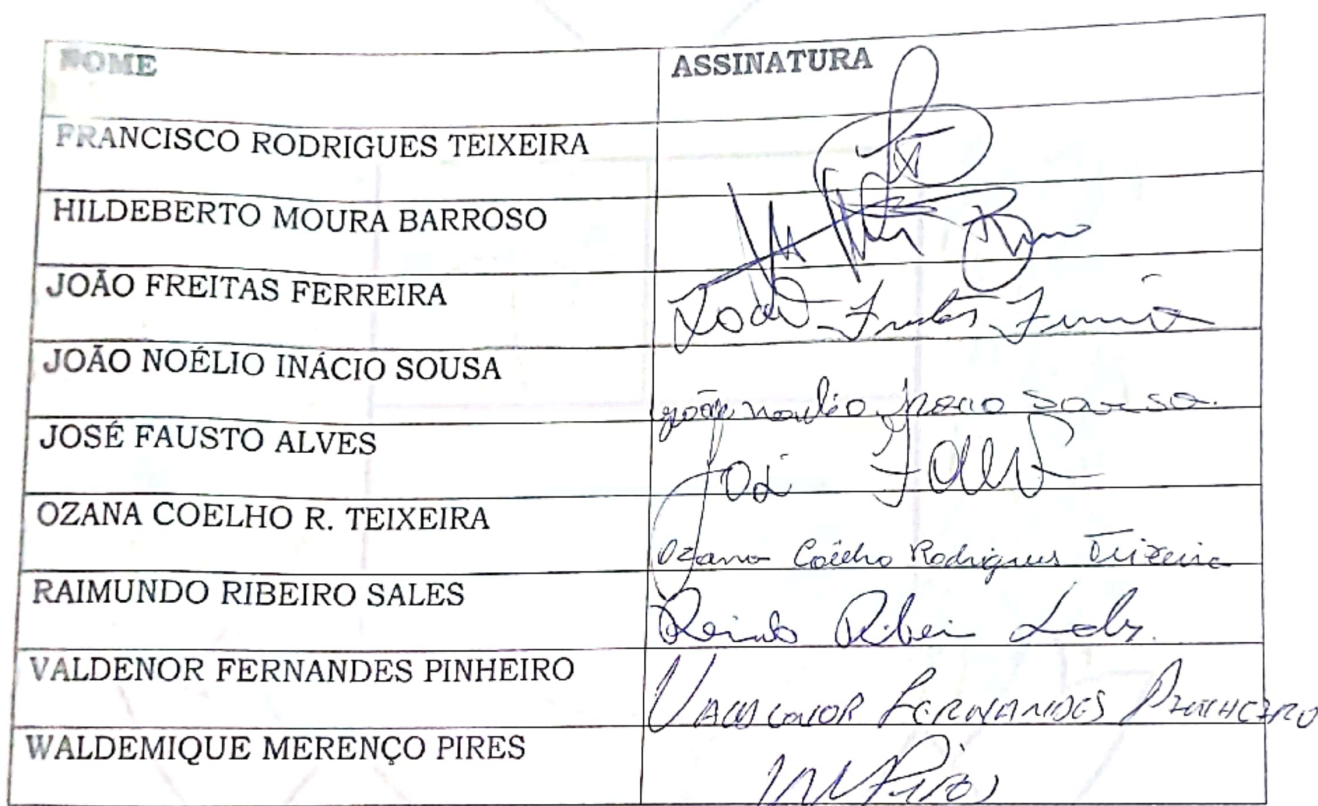 NOME ASSINATURA
FRANCISCO RODRIGUES TEIXEIRA
HILDEBERTO MOURA BARROSO
JOÃO FREITAS FERREIRA João Freitas Ferreira
JOÃO NOÉLIO INÁCIO SOUSA João Noelio Inacio Sousa.
JOSÉ FAUSTO ALVES José
OZANA COELHO R. TEIXEIRA Ozana Coelho Rodrigues Teixeira
RAIMUNDO RIBEIRO SALES
VALDENOR FERNANDES PINHEIRO VALDENOR FERNANDES PINHEIRO
WALDEMIQUE MERENÇO PIRES WMPires